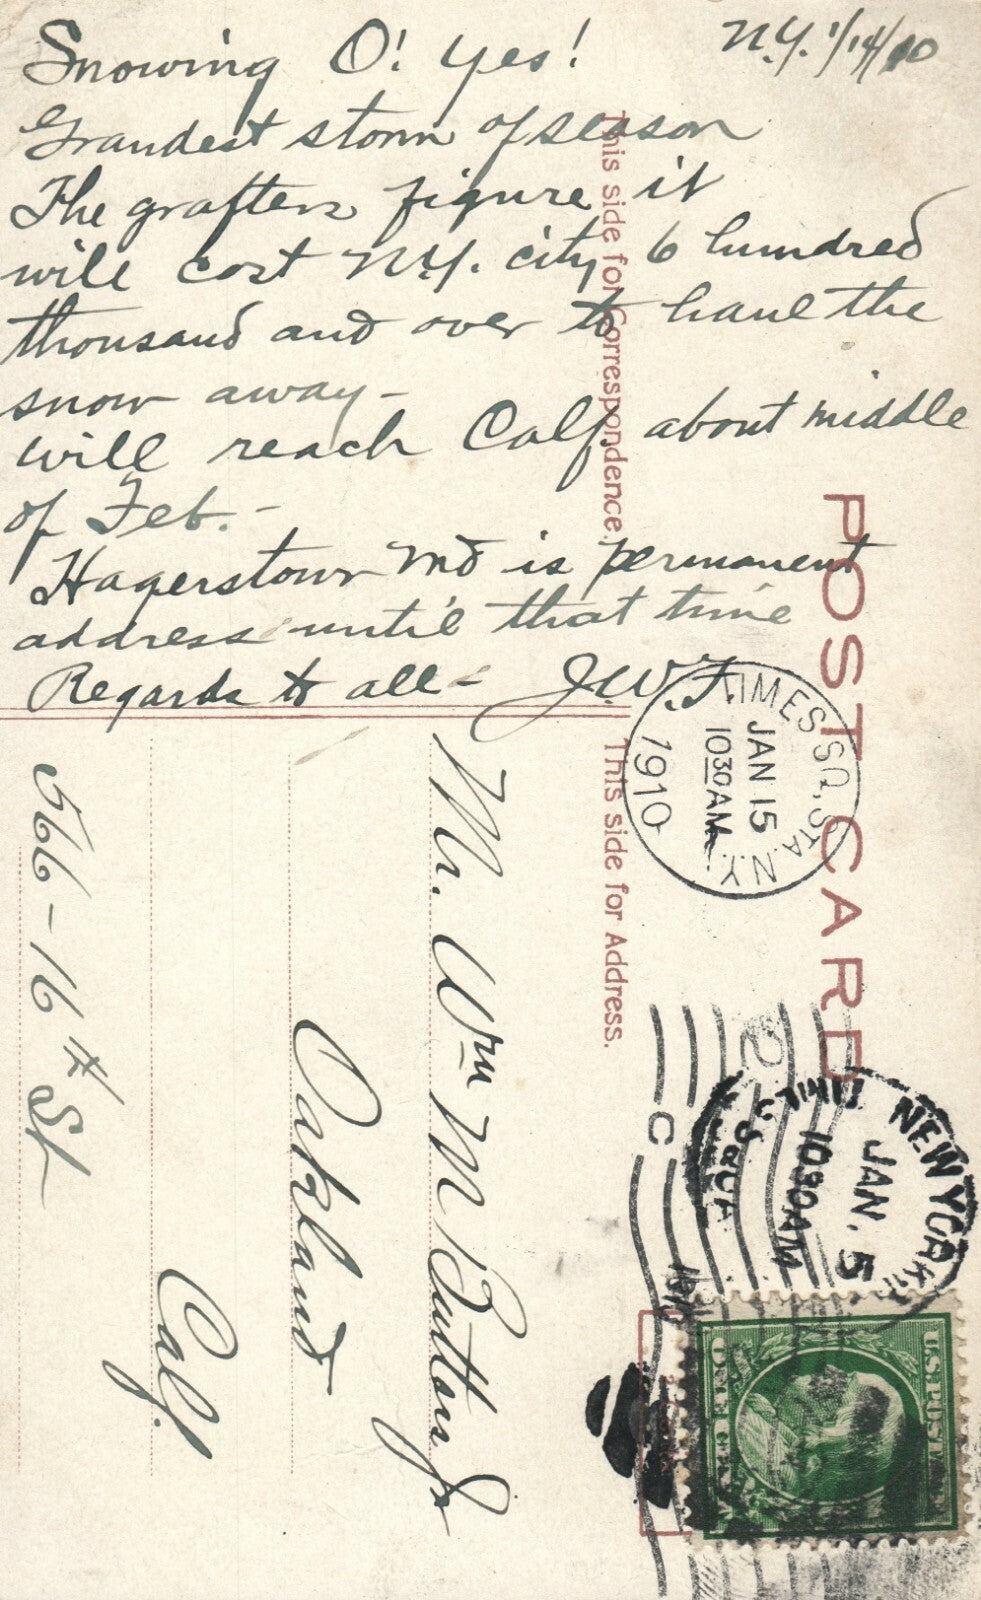 N.Y. 1/14/10
Snowing O! Yes!
Grandest storm of season
The grafters figure it
will cost N.Y. city 6 hundred
thousand and over to haul the
snow away -
will reach Calf. about middle
of Feb. -
Hagerstown Md is permanent
address until that time
Regards to all - J.W.T.
This side for Correspondence.
POST CARD
This side for Address.
Mr. Wm M Button Jr
Oakland
Calf.
566 - 16th St
TIMES SQ. STA
N.Y.
JAN 15
10 30 AM
1910
NEW YORK
JAN. 5
10 30 AM
TIMES
C
U.S. POSTAGE
ONE CENT